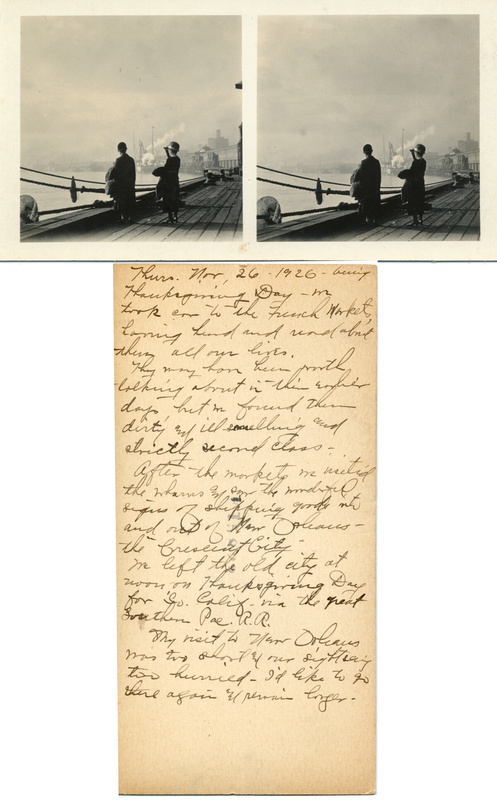 Thurs. Nov, 26 - 1926 - being
Thanksgiving Day - we
took car to the French Markets,
having heard and read about
them all our lives.
They may have been worth
talking about in their earlier
days but we found them
dirty & ill smelling and
strictly second class -
After the markets we visited
the wharves & saw the wonderful
signs of shipping goods into
and out of New Orleans -
the "Crescent City"
We left the old city at
noon on Thanksgiving Day
for So. Calif. via the great
Southern Pac. R.R.
My visit to New Orleans
was too short & our sightseeing
too hurried - I'd like to go
there again & remain longer -